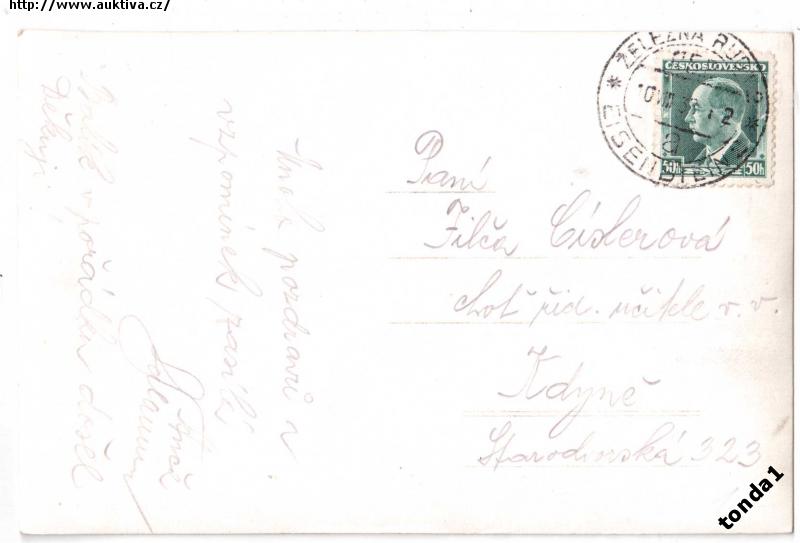 http://www.auktiva.cz/
ŽELEZNÁ RUDA
EISENSTEIN
ČESKOSLOVENSKO
50h 50h
Paní
Filča Císlerová
choť říd. učitele v. v.
Kdyně
Starodvorská 323
Mnoho pozdravů a
vzpomínek zasílá
Balík v pořádku došel
Děkuji
tonda1